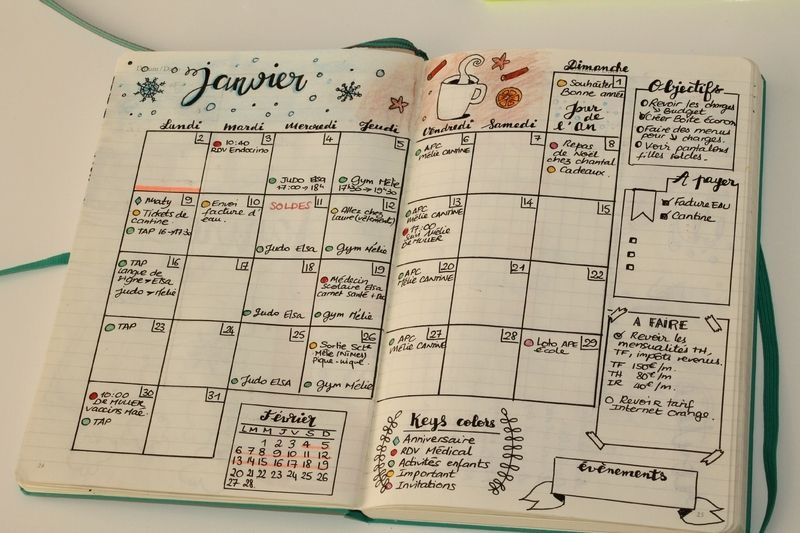 Janvier
Lundi
Mardi
Mercredi
Jeudi
Vendredi
Samedi
Dimanche
1
Souhaiter
Bonne année
Jour
de
l'An
2
3
10:40
RDV Endocrino
4
JUDO Elsa
17:00 → 18H
5
Gym Mélie
17H30 → 19H30
6
APC
Mélie CANTINE
7
8
Repas
de Noël
chez chantal
Cadeaux.
9
Maty
Tickets de
cantine
TAP 16→17H30
10
Envoi
facture d'
eau.
11
SOLDES
Judo Elsa
12
Allez chez
Laure (vêtement)
Gym Mélie
13
APC
Mélie CANTINE
17:00
Suivi Mélie
DR MULLER
14
15
16
TAP
Langue de
signe → Elsa
Judo → Mélie
17
18
Judo Elsa
19
Médecin
scolaire Elsa
carnet santé +
Gym Mélie
20
APC
Mélie CANTINE
21
22
23
TAP
24
25
Judo ELSA
26
Sortie
Mélie (Nîmes)
pique-nique.
Gym Mélie
27
APC
Mélie CANTINE
28
29
Loto APE
école
30
10:00
DR MULLER
vaccins Mae.
TAP
31
Février
L M M J V S D
1 2 3 4 5
6 7 8 9 10 11 12
13 14 15 16 17 18 19
20 21 22 23 24 25 26
27 28.
Keys colors
Anniversaire
RDV Médical
Activités enfants
Important
Invitations
Objectifs
Revoir les charges
→ Budget
Créer Boîte Econom
Faire des menus
pour ↘ charges.
Voir pantalons
filles soldes.
A payer
Facture EAU
Cantine
A FAIRE
Revoir les
mensualités TH,
TF, impôts revenus.
TF 150€/m.
TH 80€/m.
IR 40€/m.
Revoir tarif
Internet Orange.
évènements
24
25